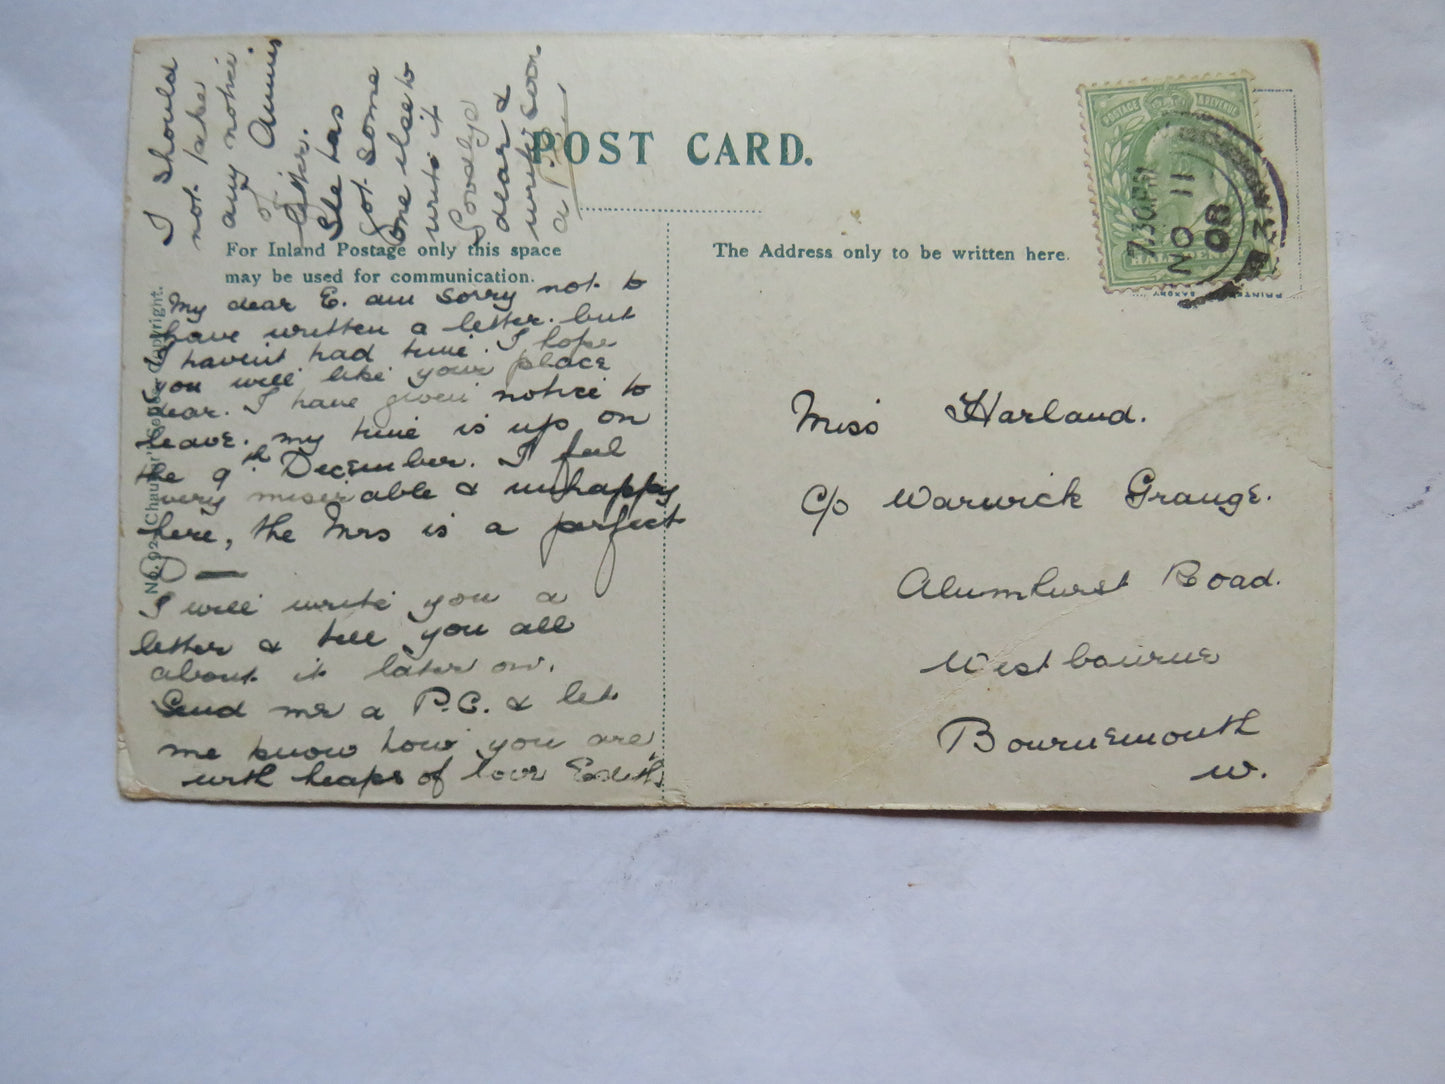 POST CARD.
For Inland Postage only this space
may be used for communication.
The Address only to be written here.
My dear E. am sorry not to
have written a letter. but
I havent had time. I hope
you will like your place
dear. I have given notice to
leave. my time is up on
the 9th December. I feel
very miserable & unhappy
here, the Mrs is a perfect
—
I will write you a
letter & tell you all
about it later on.
Send me a P.C. & let
me know how you are
with heaps of love Edith
I should
not take
any notice
of Annies
letters.
She has
Got some
one else to
write it
Goodbye
dear &
write soon
a P.C.
Miss Harland.
C/o Warwick Grange.
Alumhurst Road.
Westbourne
Bournemouth
W.
7.30 PM
NO 11
08
POSTAGE & REVENUE
PRINTED
SAXONY
Copyright.